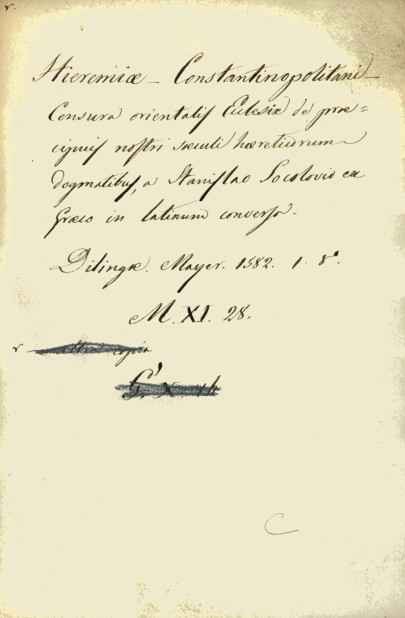 v.
Hieremiæ - Constantinopolitani -
Censura orientalis Eclesiæ de præ=
cipuis nostri sæculi hæreticorum
dogmatibus, a Stanislao Socolovio ex
Græco in latinum conversa.
Dilingæ. Mayer. 1582. 1. 8°.
M. XI. 28.
v altra copia
G. X.
C